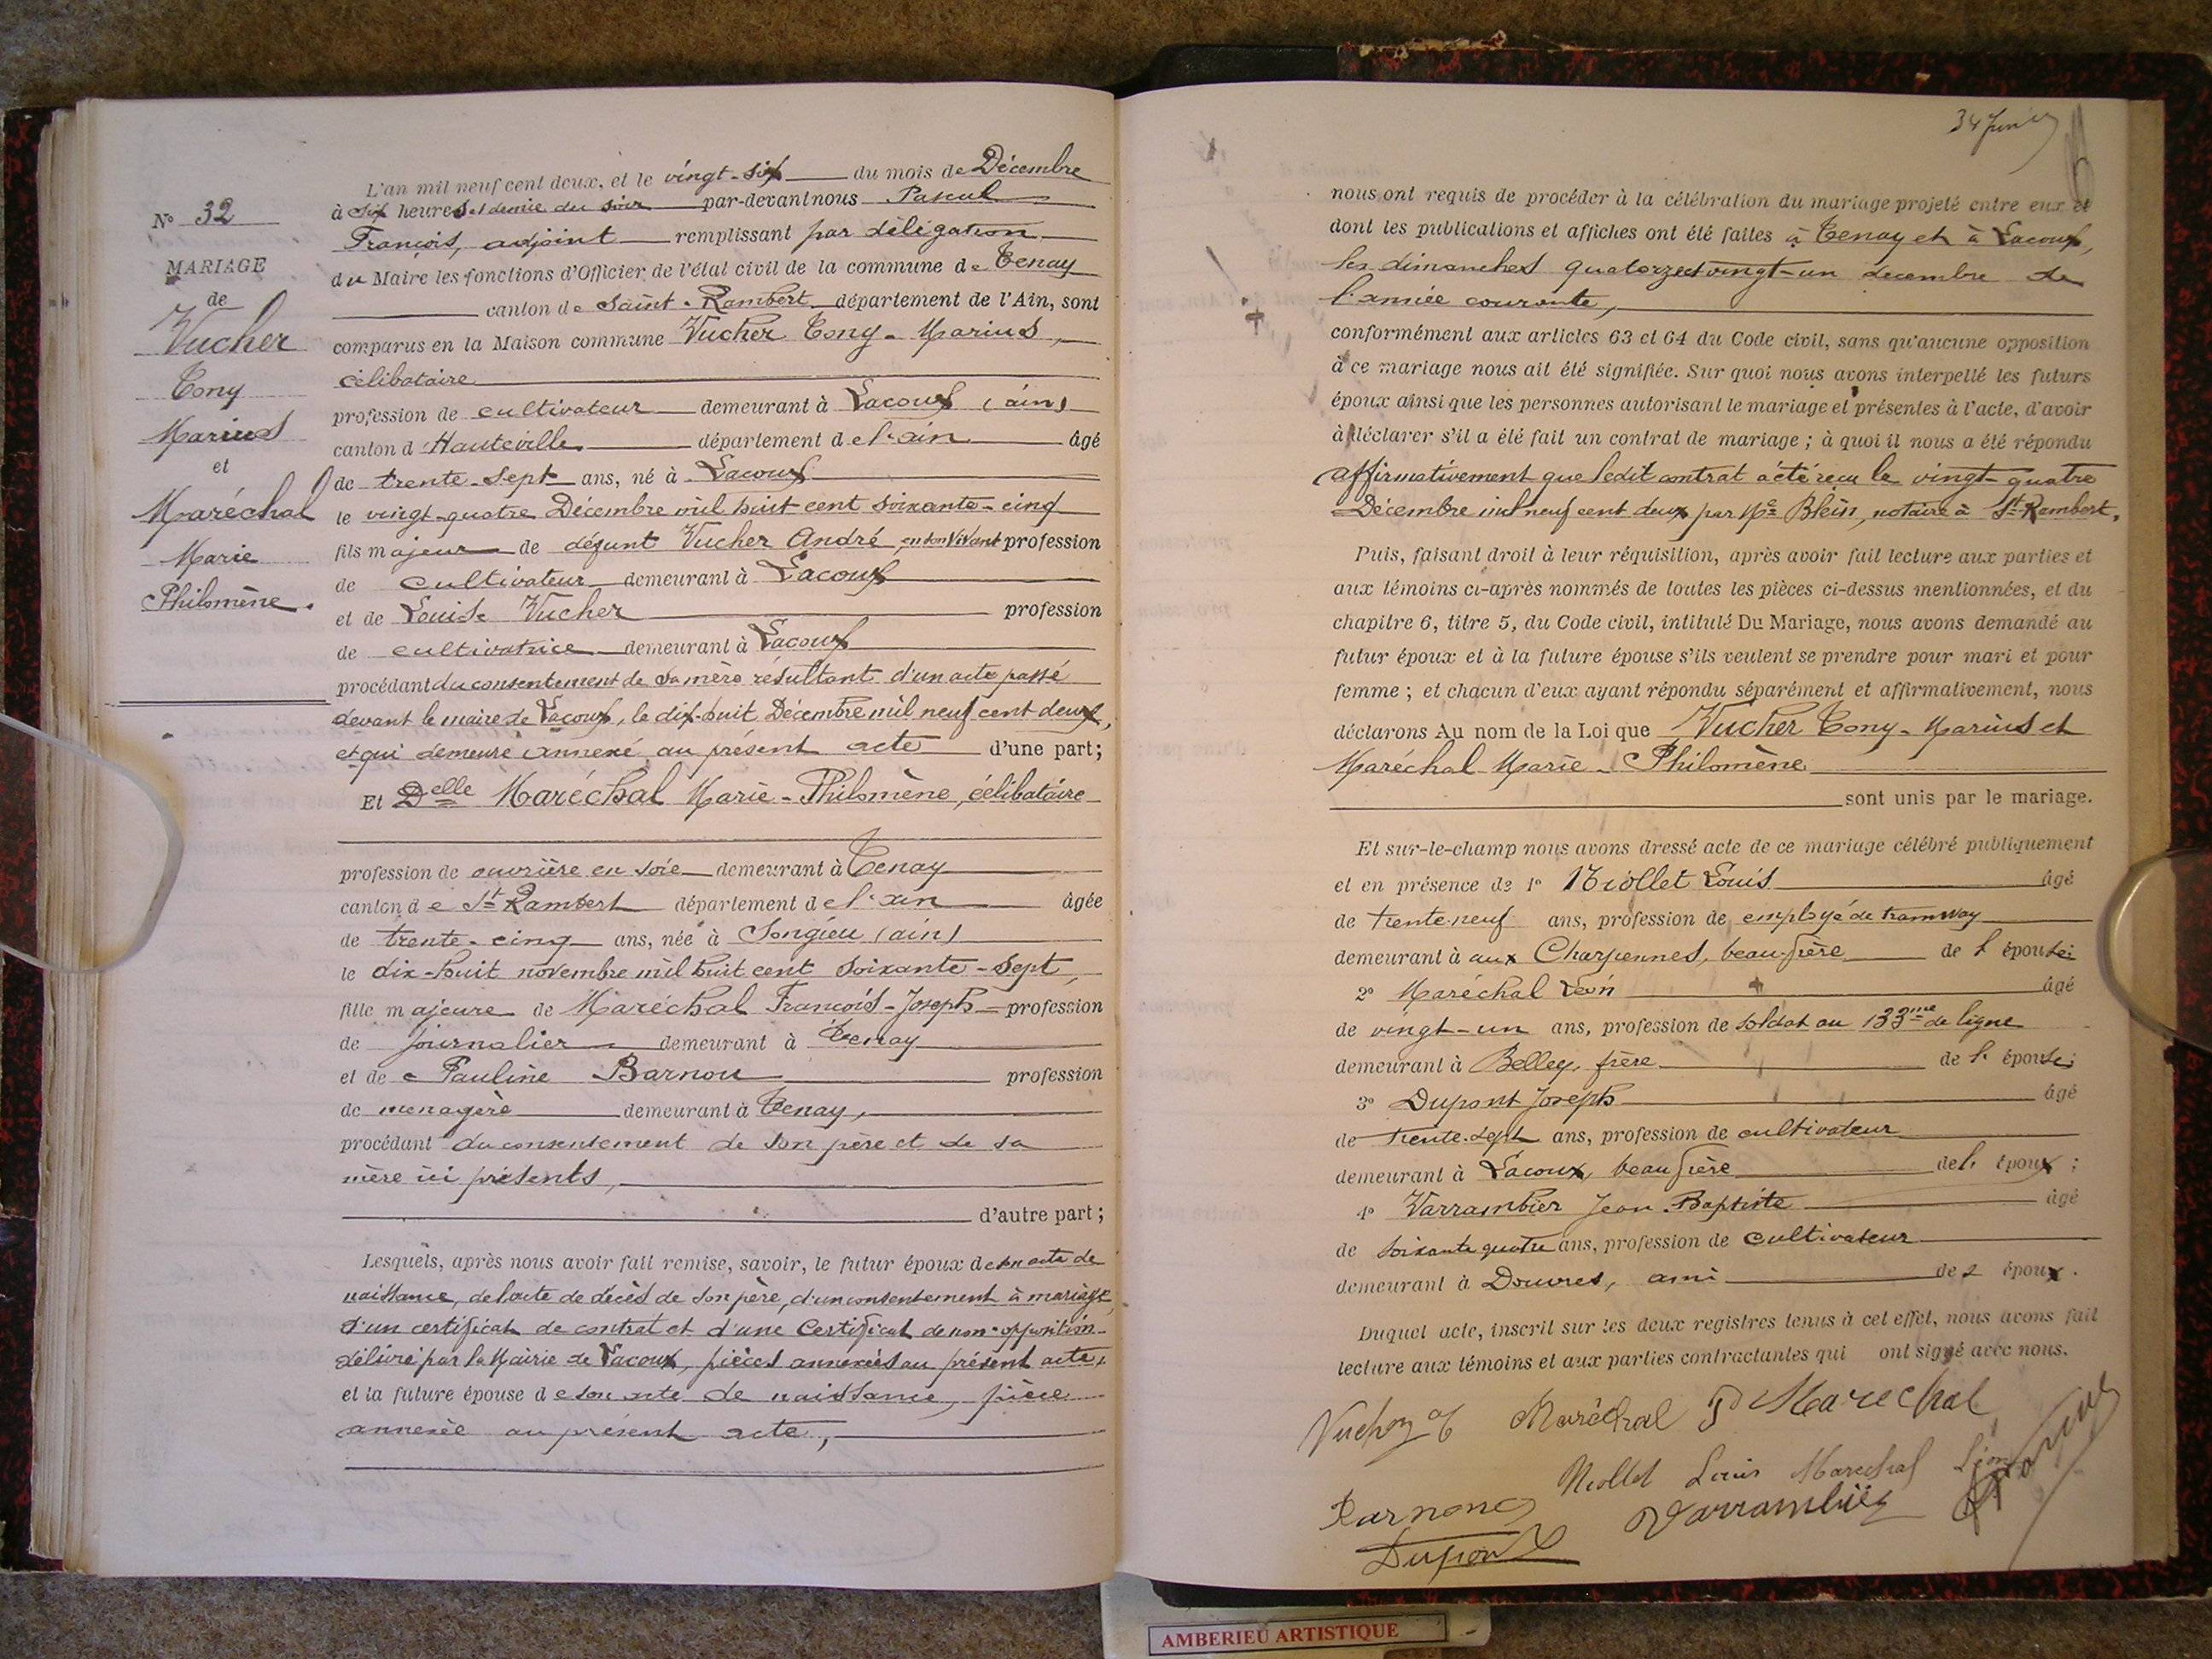 N° 32
MARIAGE
de
Vucher
Tony
Marius
et
Maréchal
Marie
Philomène.
L'an mil neuf cent deux, et le vingt-six du mois de Décembre
à six heures et demie du soir par-devant nous Pascal
François, adjoint remplissant par délégation
du Maire les fonctions d'Officier de l'état civil de la commune de Tenay
canton de Saint-Rambert département de l'Ain, sont
comparus en la Maison commune Vucher Tony-Marius,
célibataire
profession de cultivateur demeurant à Lacoux (ain)
canton d'Hauteville département de l'ain âgé
de trente-sept ans, né à Lacoux
le vingt-quatre Décembre mil huit cent soixante-cinq
fils majeur de défunt Vucher André, en son vivant profession
de cultivateur demeurant à Lacoux
et de Louise Vucher profession
de cultivatrice demeurant à Lacoux
procédant du consentement de sa mère résultant d'un acte passé
devant le maire de Lacoux, le dix-huit Décembre mil neuf cent deux,
et qui demeure annexé au présent acte d'une part;
Et Delle Maréchal Marie-Philomène, célibataire
profession de ouvrière en soie demeurant à Tenay
canton de St Rambert département de l'ain âgée
de trente-cinq ans, née à Songieu (ain)
le dix-huit novembre mil huit cent soixante-sept,
fille majeure de Maréchal François-Joseph profession
de journalier demeurant à Tenay
et de Pauline Barnou profession
de menagère demeurant à Tenay,
procédant du consentement de son père et de sa
mère ici présents,
d'autre part;
Lesquels, après nous avoir fait remise, savoir, le futur époux de son acte de
naissance, de l'acte de décès de son père, d'un consentement à mariage,
d'un certificat de contrat et d'une Certificat de non-opposition
délivré par la Mairie de Lacoux, pièces annexées au présent acte,
et la future épouse de son acte de naissance, pièce
annexée au présent acte,
nous ont requis de procéder à la célébration du mariage projeté entre eux et
dont les publications et affiches ont été faites à Tenay et à Lacoux,
les dimanches quatorze et vingt-un decembre de
l'année courante,
conformément aux articles 63 et 64 du Code civil, sans qu'aucune opposition
à ce mariage nous ait été signifiée. Sur quoi nous avons interpellé les futurs
époux ainsi que les personnes autorisant le mariage et présentes à l'acte, d'avoir
à déclarer s'il a été fait un contrat de mariage; à quoi il nous a été répondu
affirmativement que ledit contrat a été reçu le vingt-quatre
Décembre mil neuf cent deux par Me Blein, notaire à St-Rambert.
Puis, faisant droit à leur réquisition, après avoir fait lecture aux parties et
aux témoins ci-après nommés de toutes les pièces ci-dessus mentionnées, et du
chapitre 6, titre 5, du Code civil, intitulé Du Mariage, nous avons demandé au
futur époux et à la future épouse s'ils veulent se prendre pour mari et pour
femme; et chacun d'eux ayant répondu séparément et affirmativement, nous
déclarons Au nom de la Loi que Vucher Tony-Marius et
Maréchal Marie-Philomène
sont unis par le mariage.
Et sur-le-champ nous avons dressé acte de ce mariage célébré publiquement
et en présence de 1° Niollet Louis âgé
de trente-neuf ans, profession de employé de tramway
demeurant à aux Charpennes, beau-frère de l'épouse;
2° Maréchal Léon âgé
de vingt-un ans, profession de soldat au 133me de ligne
demeurant à Belley, frère de l'épouse;
3° Dupont Joseph âgé
de trente-sept ans, profession de cultivateur
demeurant à Lacoux, beau frère de l'époux;
4° Varrambier Jean-Baptiste âgé
de soixante quatre ans, profession de cultivateur
demeurant à Douvres, ami des époux.
Duquel acte, inscrit sur les deux registres tenus à cet effet, nous avons fait
lecture aux témoins et aux parties contractantes qui ont signé avec nous.
Maréchal Marechal
Niollet Louis Marechal Léon
Varrambier
Dupont
AMBERIEU ARTISTIQUE